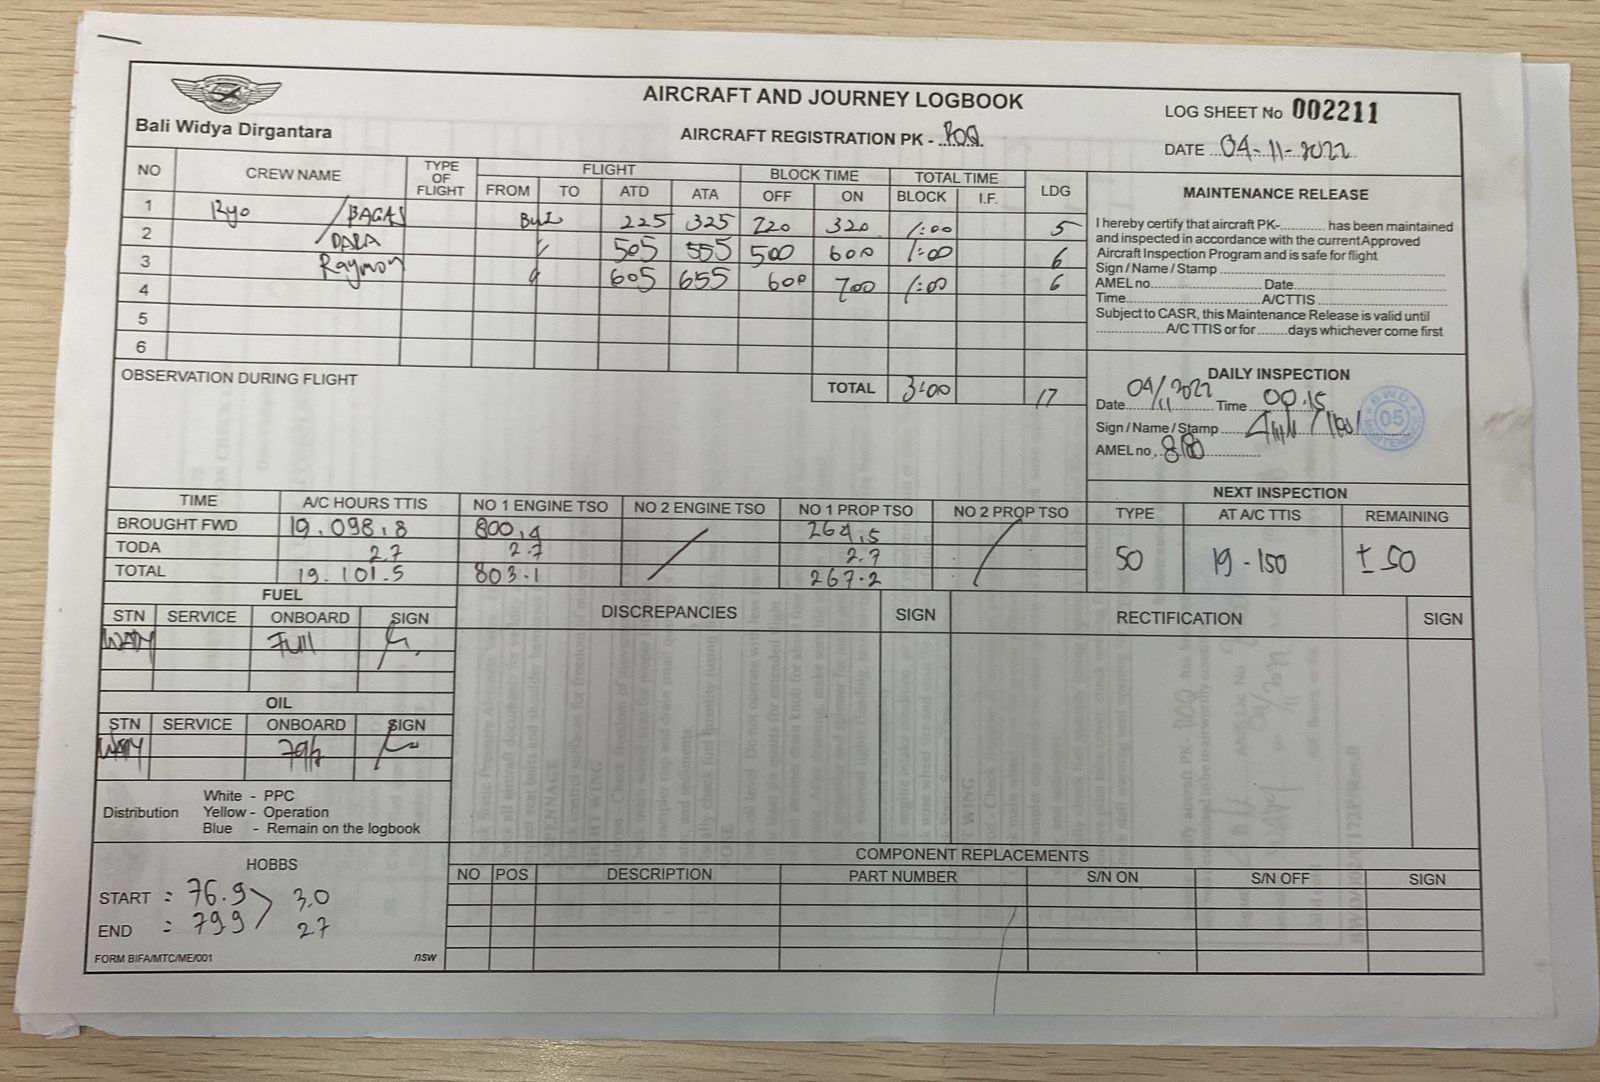 Bali Widya Dirgantara
AIRCRAFT AND JOURNEY LOGBOOK
AIRCRAFT REGISTRATION PK - ROQ
LOG SHEET No 002211
DATE 04-11-2022
NO CREW NAME TYPE OF FLIGHT FLIGHT BLOCK TIME TOTAL TIME LDG
FROM TO ATD ATA OFF ON BLOCK I.F.
1 Ryo / BAGAS 225 325 220 320 1:00 5
2 / DARA 505 555 500 600 1:00 6
3 Raymon 605 655 600 700 1:00 6
4
5
6
TOTAL 3:00 17
OBSERVATION DURING FLIGHT
MAINTENANCE RELEASE
I hereby certify that aircraft PK-............. has been maintained
and inspected in accordance with the current Approved
Aircraft Inspection Program and is safe for flight
Sign / Name / Stamp
AMEL no. Date
Time A/CTTIS
Subject to CASR, this Maintenance Release is valid until
A/C TTIS or for ........ days whichever come first
DAILY INSPECTION
Date 04/11/2022 Time 00.15
Sign / Name / Stamp
B.W.D. 05 MAINTENANCE
AMEL no.
NEXT INSPECTION
TYPE AT A/C TTIS REMAINING
50 19-150 ± 50
TIME A/C HOURS TTIS NO 1 ENGINE TSO NO 2 ENGINE TSO NO 1 PROP TSO NO 2 PROP TSO
BROUGHT FWD 19.098,8 800,4 264,5
TODA 2.7 2.7 2.7
TOTAL 19.101.5 803.1 267.2
FUEL
STN SERVICE ONBOARD SIGN
WADY Full
OIL
STN SERVICE ONBOARD SIGN
WADY
Distribution
White - PPC
Yellow - Operation
Blue - Remain on the logbook
DISCREPANCIES SIGN RECTIFICATION SIGN
HOBBS
START : 76.9 3.0
END : 799 2.7
COMPONENT REPLACEMENTS
NO POS DESCRIPTION PART NUMBER S/N ON S/N OFF SIGN
FORM BIFA/MTC/ME/001 nsw